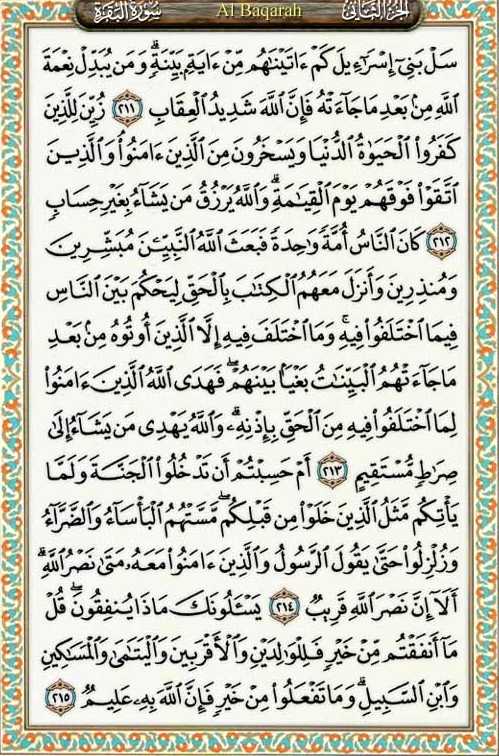 الجزء الثاني Al Baqarah سورة البقرة
سَلْ بَنِىٓ إِسْرَٰٓءِيلَ كَمْ ءَاتَيْنَٰهُم مِّنْ ءَايَةٍۭ بَيِّنَةٍۗ وَمَن يُبَدِّلْ نِعْمَةَ
ٱللَّهِ مِنۢ بَعْدِ مَا جَآءَتْهُ فَإِنَّ ٱللَّهَ شَدِيدُ ٱلْعِقَابِ ٢١١ زُيِّنَ لِلَّذِينَ
كَفَرُوا۟ ٱلْحَيَوٰةُ ٱلدُّنْيَا وَيَسْخَرُونَ مِنَ ٱلَّذِينَ ءَامَنُوا۟ۘ وَٱلَّذِينَ
ٱتَّقَوْا۟ فَوْقَهُمْ يَوْمَ ٱلْقِيَٰمَةِۗ وَٱللَّهُ يَرْزُقُ مَن يَشَآءُ بِغَيْرِ حِسَابٍ
٢١٢ كَانَ ٱلنَّاسُ أُمَّةً وَٰحِدَةً فَبَعَثَ ٱللَّهُ ٱلنَّبِيِّۦنَ مُبَشِّرِينَ
وَمُنذِرِينَ وَأَنزَلَ مَعَهُمُ ٱلْكِتَٰبَ بِٱلْحَقِّ لِيَحْكُمَ بَيْنَ ٱلنَّاسِ
فِيمَا ٱخْتَلَفُوا۟ فِيهِۚ وَمَا ٱخْتَلَفَ فِيهِ إِلَّا ٱلَّذِينَ أُوتُوهُ مِنۢ بَعْدِ
مَا جَآءَتْهُمُ ٱلْبَيِّنَٰتُ بَغْيًۢا بَيْنَهُمْۖ فَهَدَى ٱللَّهُ ٱلَّذِينَ ءَامَنُوا۟
لِمَا ٱخْتَلَفُوا۟ فِيهِ مِنَ ٱلْحَقِّ بِإِذْنِهِۦۗ وَٱللَّهُ يَهْدِى مَن يَشَآءُ إِلَىٰ
صِرَٰطٍ مُّسْتَقِيمٍ ٢١٣ أَمْ حَسِبْتُمْ أَن تَدْخُلُوا۟ ٱلْجَنَّةَ وَلَمَّا
يَأْتِكُم مَّثَلُ ٱلَّذِينَ خَلَوْا۟ مِن قَبْلِكُمۖ مَّسَّتْهُمُ ٱلْبَأْسَآءُ وَٱلضَّرَّآءُ
وَزُلْزِلُوا۟ حَتَّىٰ يَقُولَ ٱلرَّسُولُ وَٱلَّذِينَ ءَامَنُوا۟ مَعَهُۥ مَتَىٰ نَصْرُ ٱللَّهِۗ
أَلَآ إِنَّ نَصْرَ ٱللَّهِ قَرِيبٌ ٢١٤ يَسْـَٔلُونَكَ مَاذَا يُنفِقُونَۖ قُلْ
مَآ أَنفَقْتُم مِّنْ خَيْرٍ فَلِلْوَٰلِدَيْنِ وَٱلْأَقْرَبِينَ وَٱلْيَتَٰمَىٰ وَٱلْمَسَٰكِينِ
وَٱبْنِ ٱلسَّبِيلِۗ وَمَا تَفْعَلُوا۟ مِنْ خَيْرٍ فَإِنَّ ٱللَّهَ بِهِۦ عَلِيمٌ ٢١٥